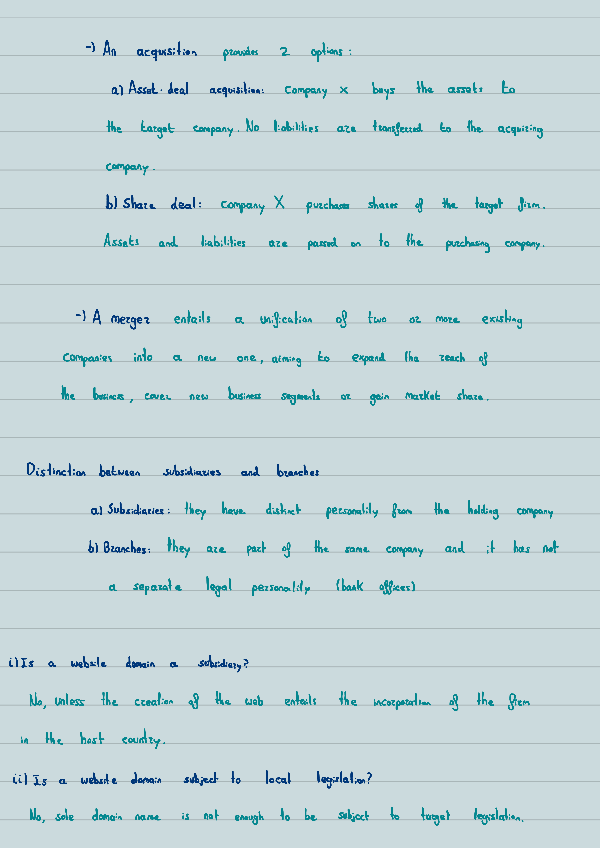 -) An acquisition provides 2 options:
a) Asset-deal acquisition: Company x buys the assets to
the target company. No liabilities are transferred to the acquiring
company.
b) Share deal: Company X purchases shares of the target firm.
Assets and liabilities are passed on to the purchasing company.
-) A merger entails a unification of two or more existing
companies into a new one, aiming to expand the reach of
the business, cover new business segments or gain market share.
Distinction between subsidiaries and branches
a) Subsidiaries: they have distinct personality from the holding company
b) Branches: they are part of the same company and it has not
a separate legal personality (bank offices)
i) Is a website domain a subsidiary?
No, unless the creation of the web entails the incorporation of the firm
in the host country.
ii) Is a website domain subject to local legislation?
No, sole domain name is not enough to be subject to target legislation.